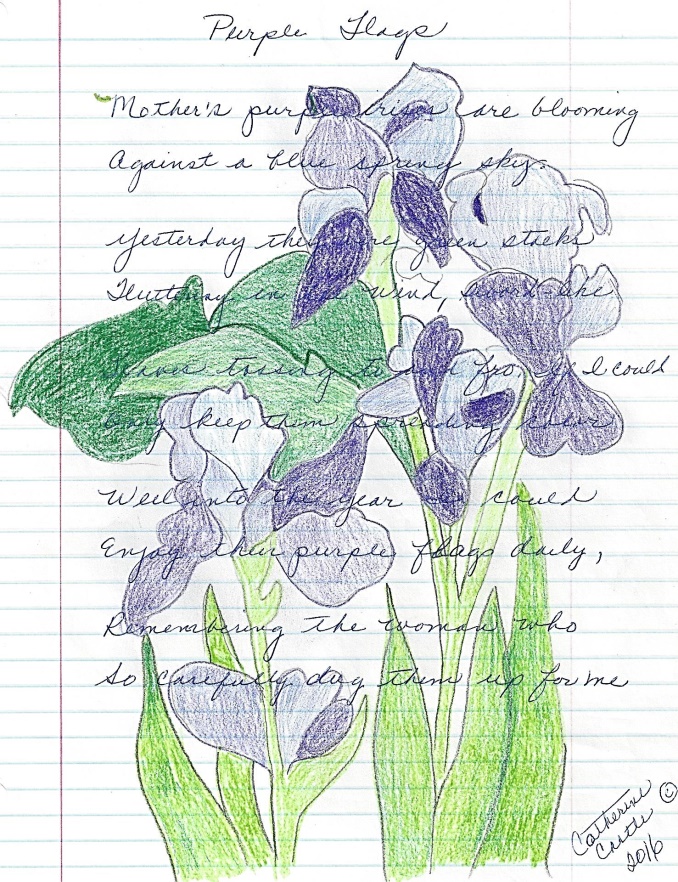 Purple Flags
Mother's purple irises are blooming
Against a blue spring sky.
Yesterday they were green stalks
Fluttering in the wind, sword-like
Leaves tossing to and fro. If I could
Only keep them spreading color
Well into the year could
Enjoy their purple flags daily,
Remembering the woman who
So carefully dug them up for me
Catherine
Castle ☺
2016